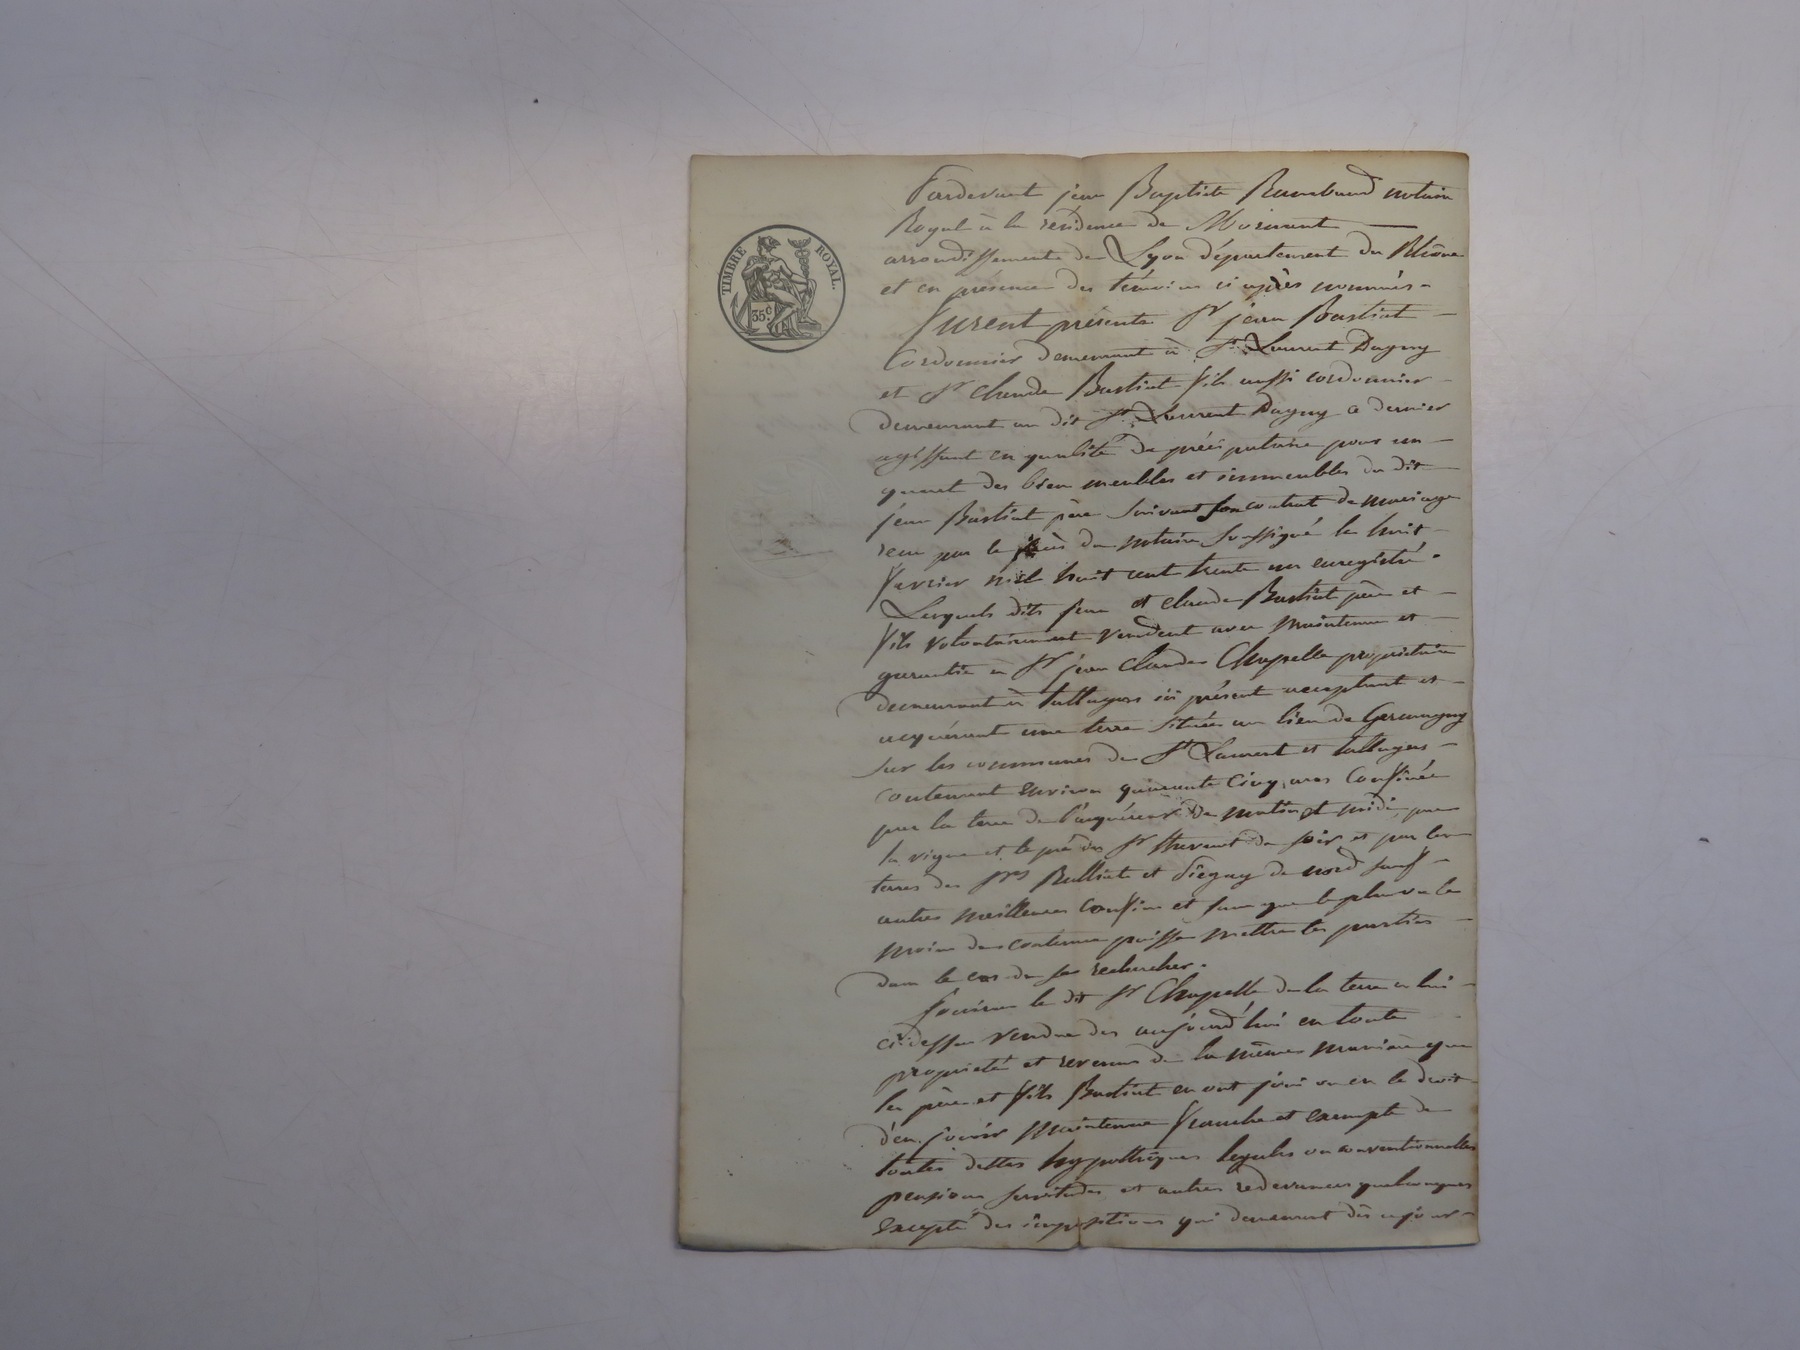 TIMBRE ROYAL.
35c
Pardevant jean Baptiste Rambaud notaire
Royal à la résidence de Mornant
arrondissement de Lyon département du Rhône
et en présence des témoins ci après nommés -
furent présents Sr jean Bastiat -
Cordonnier demeurant à St Laurent Dagny
et Sr Claude Bastiat fils aussi cordonnier -
demeurant au dit St Laurent Dagny ce dernier
agissant en qualité de préciputaire pour un -
quart des bien meubles et immeubles du dit
jean Bastiat père suivant son contrat de mariage
recu par le père du notaire soussigné le huit -
fevrier mil huit cent trente un enregistré.
Lesquels dits jean et claude Bastiat père et -
fils volontairement vendent avec maintenue et -
garantie à Sr jean Claude Chapelle propriétaire
demeurant à talluyers ici présent acceptant et -
acquérant une terre située au lieu de Germagny
sur les communes de St Laurent et talluyers -
contenant environ quarante cinq ares Confinée
par la terre de l'acquéreur de matin et midi, par
la vigne et le pré du Sr de soir et par les
terres des Srs et de nord sauf -
autres meilleurs confins et sans que le plus ou le
moins de contenue puisse mettre les parties -
dans le cas de se rechercher.
Jouira le dit Sr Chapelle de la terre a lui -
ci-dessus vendue des aujourd'hui en toute
propriété et revenus de la même manière que
les père et fils Bastiat en ont joui ou eu le droit
d'en jouir maintenue franche et exempte de
toutes dettes hypothèques legales ou conventionnelles
pensions servitudes et autres redevances quelconques
excepté des impositions qui demeurent dès aujour-